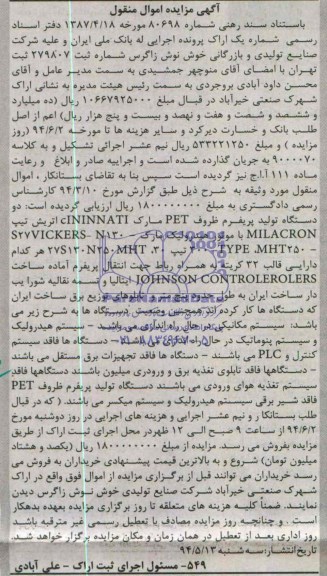 آگهی مزایده اموال منقول
باستناد سند رهنی شماره ۸۰۶۹۸ مورخه ۱۳۸۷/۴/۱۸ دفتر اسناد
رسمی شماره یک اراک پرونده اجرایی له بانک ملی ایران و علیه شرکت
صنایع تولیدی و بازرگانی خوش نوش زاگرس شماره ثبت ۲۷۹۸۰۷ ثبت
تهران با امضای آقای منوچهر جمشیدی به سمت مدیر عامل و آقای
محسن داود آبادی بروجردی به سمت رئیس هیئت مدیره به نشانی اراک
شهرک صنعتی خیرآباد در قبال مبلغ ۱۰۶۶۷۹۲۵۰۰۰ ریال (ده میلیارد
و ششصد و شصت و هفت و نهصد و بیست و پنج هزار ریال) اعم از اصل
طلب بانک و خسارت دیرکرد و سایر هزینه ها تا مورخه ۹۴/۶/۲ (روز
مزایده ) و مبلغ ۵۳۳۲۲۱۲۵۰ ریال نیم عشر اجرائی تشکیل و به کلاسه
۹۰۰۰۰۷۰ به جریان گذارده شده است و اجراییه صادر و ابلاغ و رعایت
ماده ۱۱۱ آ.ا.ج نیز گردیده است سپس بنا به تقاضای بستانکار ، اموال
منقول مورد وثیقه به شرح ذیل طبق گزارش مورخ ۹۴/۳/۱۰ کارشناس
رسمی دادگستری به مبلغ ۱۸۰۰۰۰۰۰۰۰ ریال ارزیابی گردیده است: دو
دستگاه تولید پریفرم ظروف PET مارک CININNATI اتریش تیپ
MILACRON با موتور هیدرولیک مارک S۲۷VICKERS- N۱۳۰
- TYPE .MHT۲۵۰ و تیپ ۲۷S۱۳۰N۲۵۰MHT .۳۰ هر کدام
دارایی قالب ۳۲ کویته به همراه رباط جهت انتقال پریفرم آماده ساخت
JOHNSON CONTROLEROLERS ایتالیا و تسمه نقاله شورا یب
دار ساخت ایران به طول حدود پنج متر و تابلوهای توزیع برق ساخت ایران
که دستگاه ها کار کرده اند همچنین وضعیت دستگاه ها به شرح زیر می
باشد: سیستم مکانیکی در حال راه اندازی می باشد – سیستم هیدرولیک
و سیستم پنوماتیک در حال راه اندازی می باشند – دستگاه ها فاقد سیستم
کنترل و PLC می باشند – دستگاه ها فاقد تجهیزات برق مستقل می باشند
– دستگاهها فاقد تابلوی تغذیه برق و ورودی میلیون باشند دستگاهها فاقد
سیستم تغذیه هوای ورودی می باشند دستگاه تولید پریفرم ظروف PET
فاقد شیر برقی سیستم هیدرولیک و سیستم میکسر می باشد. ( که در قبال
طلب بستانکار و نیم عشر اجرایی و هزینه های اجرایی در روز دوشنبه مورخ
۹۴/۶/۲ از ساعت ۹ صبح الی ۱۲ ظهر در محل اجرای ثبت اراک از طریق
مزایده بفروش می رسد. مزایده از مبلغ ۱۸۰۰۰۰۰۰۰۰ ریال (یکصد و هشتاد
میلیون تومان) شروع و به بالاترین قیمت پیشنهادی خریداران به فروش می
رسد خریداران می توانند قبل از برگزاری مزایده از اموال فوق واقع در اراک
شهرک صنعتی خیرآباد شرکت صنایع تولیدی خوش نوش زاگرس دیدن
نمایند. ضمناً کلیه هزینه های متعلقه تا روز برگزاری مزایده بعهده بدهکار
است . و چنانچه روز مزایده مصادف با تعطیل رسمی غیر مترقبه باشد
روز اداری بعد از تعطیل در همان زمان و مکان مزایده برگزار خواهد شد.
تاریخ انتشار: سه شنبه ۹۴/۵/۱۳
۵۴۹- مسئول اجرای ثبت اراک - علی آبادی